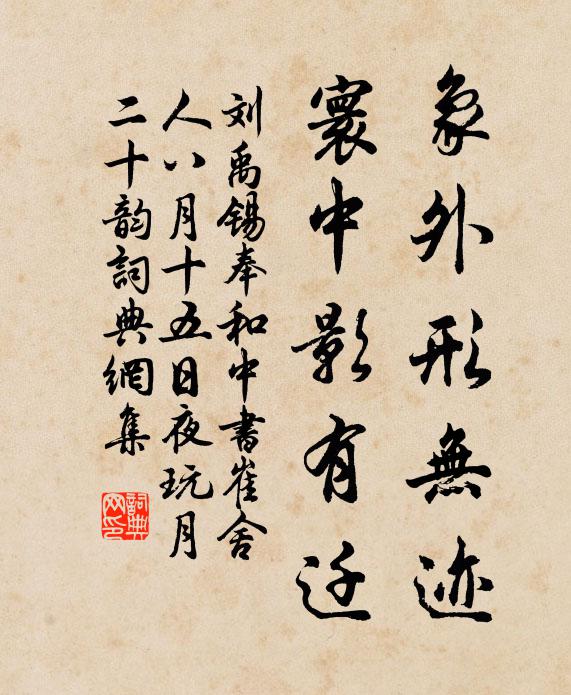 象外形無迹
寰中影有迁
刘禹锡奉和中書崔舍
人八月十五日夜玩月
二十韵詞典網集
詞典網印